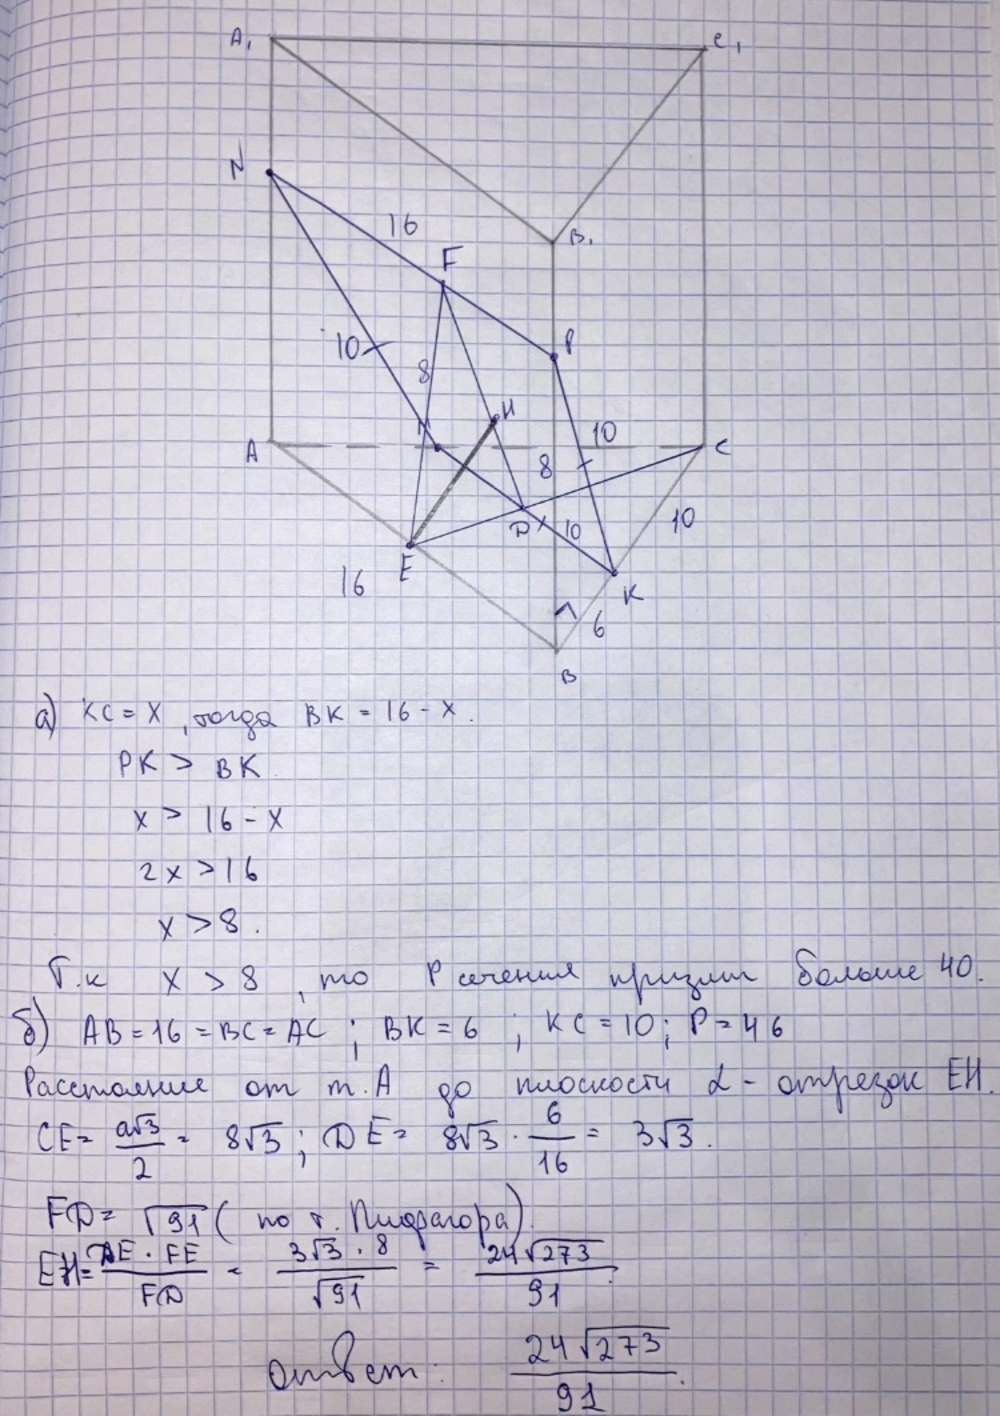 A₁
C₁
N
16
F
B₁
P
10
8
H
10
A
C
8
D
10
10
E
16
K
6
B
а) KC = x , тогда BK = 16 - x.
PK > BK
x > 16 - x
2x > 16
x > 8.
Т.к x > 8 , то P сечения призмы больше 40.
б) AB = 16 = BC = AC ; BK = 6 ; KC = 10 ; P = 46
Расстояние от т. A до плоскости α - отрезок EH.
CE = a√3/2 = 8√3 ; DE = 8√3 · 6/16 = 3√3.
FD = √91 ( по т. Пифагора).
EH = DE · FE/FD = 3√3 · 8/√91 = 24√273/91.
Ответ: 24√273/91.